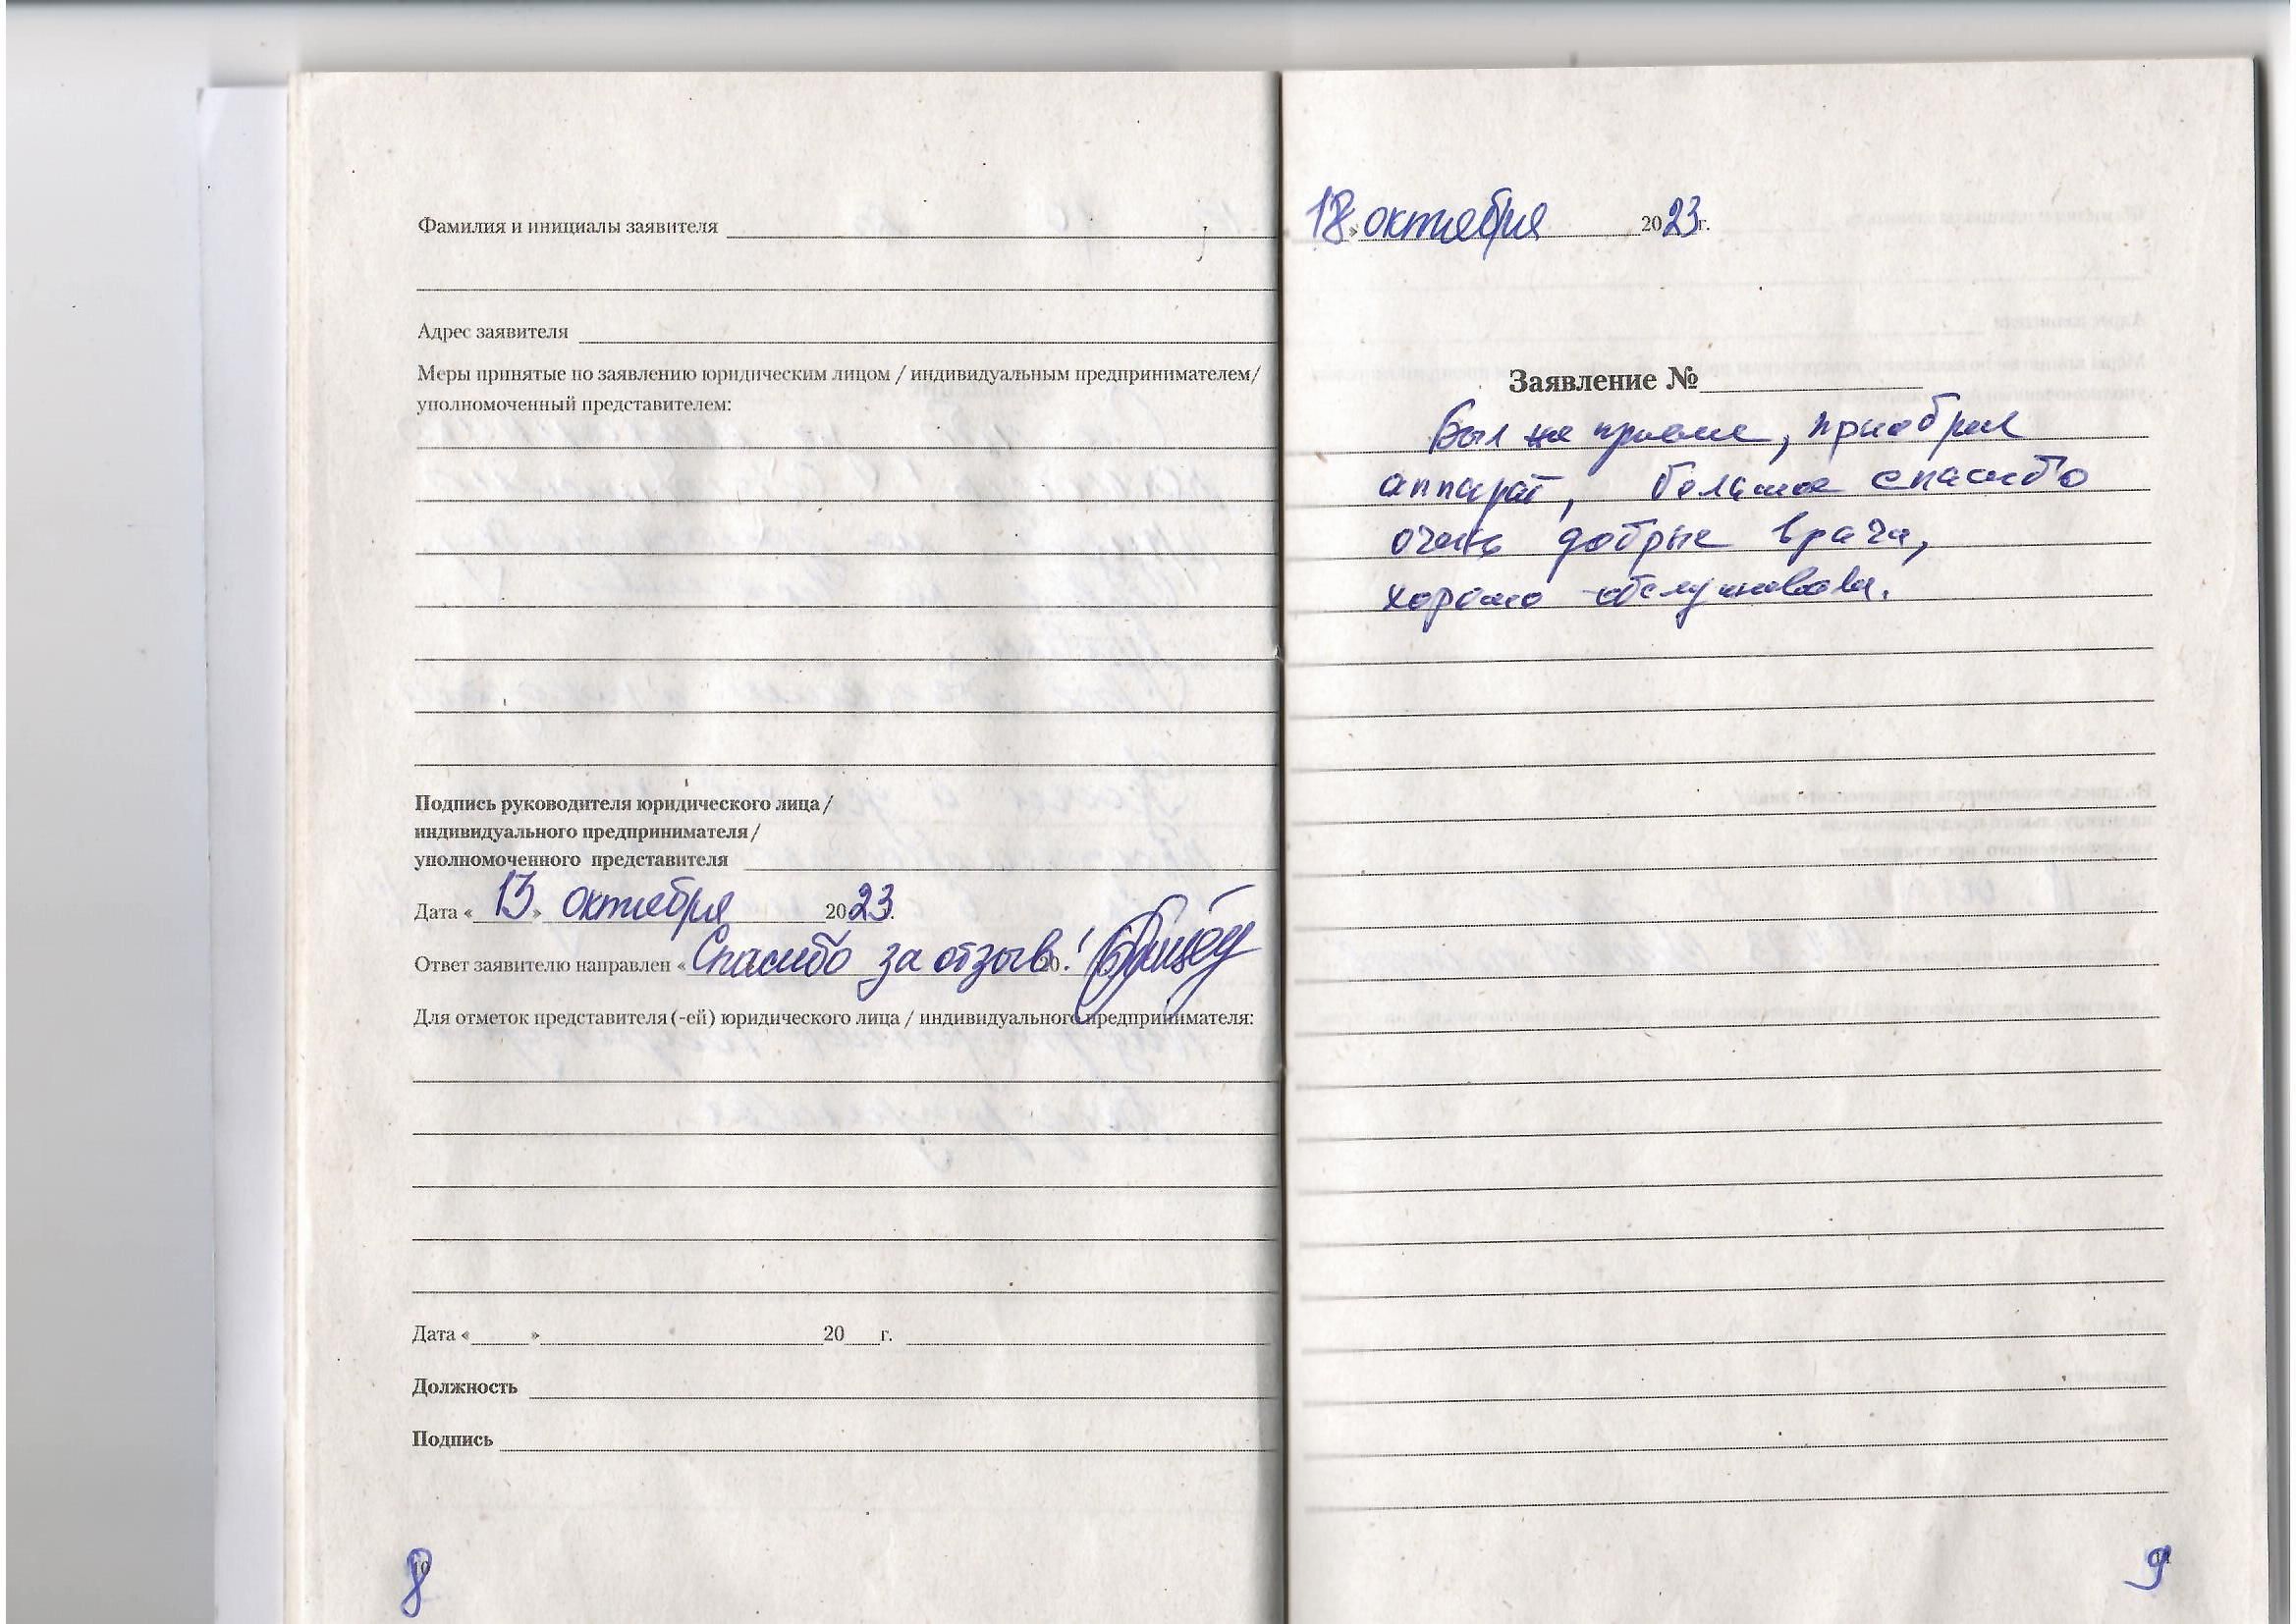 Фамилия и инициалы заявителя
Адрес заявителя
Меры принятые по заявлению юридическим лицом / индивидуальным предпринимателем/
уполномоченный представителем:
Подпись руководителя юридического лица/
индивидуального предпринимателя/
уполномоченного представителя
Дата « 13 » октября 2023.
Ответ заявителю направлен « Спасибо за отзыв! 20 .
Для отметок представителя(-ей) юридического лица / индивидуального предпринимателя:
Дата « » 20 г.
Должность
Подпись
8
18 » октября 2023 г.
Заявление №
Был на приеме, приобрел
аппарат, большое спасибо
очень добрые врачи,
хорошо обслуживали.
9